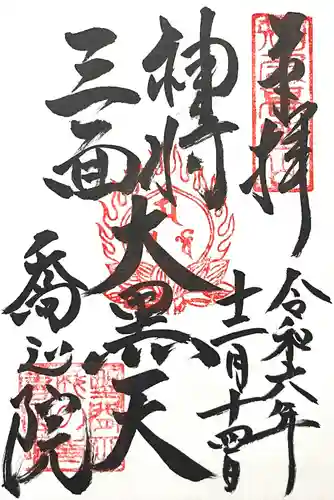 奉拝
令和六年
十二月十四日
神将
三面
大黒天
院